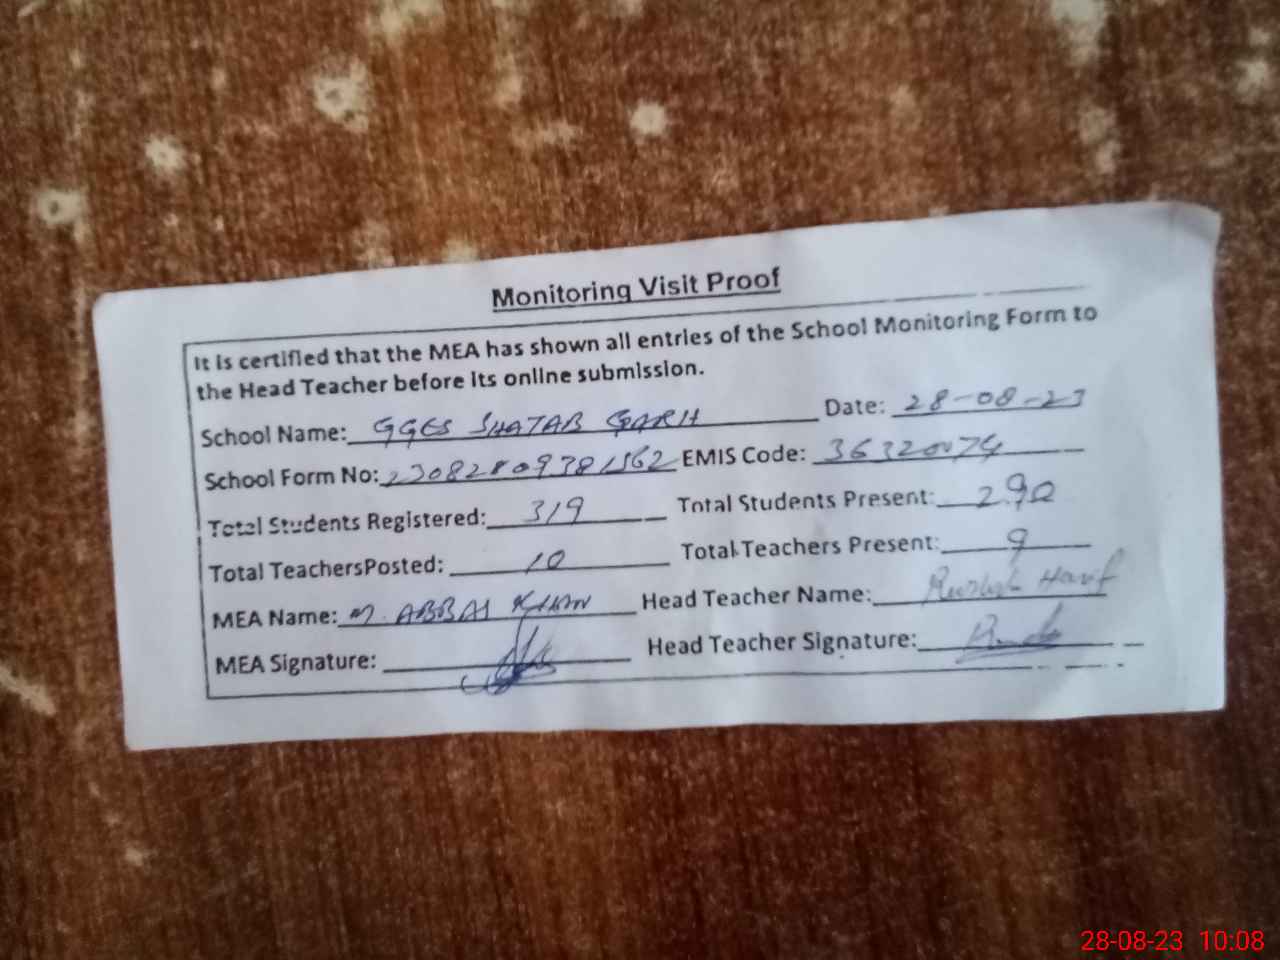 Monitoring Visit Proof
It is certified that the MEA has shown all entries of the School Monitoring Form to
the Head Teacher before its online submission.
School Name: GGES SHATAB GARH Date: 28-08-23
School Form No: EMIS Code: 36320074
Total Students Registered: 319 Total Students Present: 290
Total TeachersPosted: 10 Total Teachers Present: 9
MEA Name: M. ABBAS KHAN Head Teacher Name:
MEA Signature: Head Teacher Signature:
28-08-23 10:08